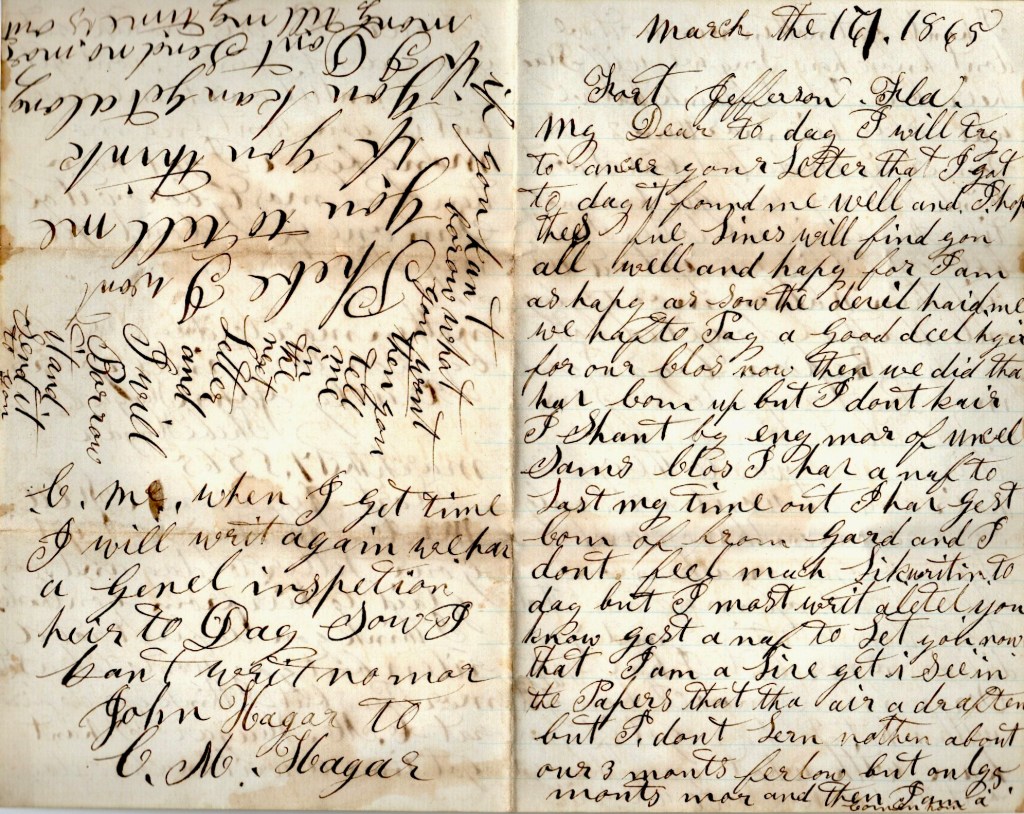 March the 17. 1865
Fort Jefferson. Fla.
My Dear to day I will try
to ancer your Letter that I got
to day it found me well and I hop
thes fue Lines will find you
all well and hapy for I am
as hapy as Sow the devil haid me
we haf to Pay a Good deel hyir
for our clos now then we did tha
har bom up but I dont kair
I Shant by eny mor of uncel
Sams clos I har a naf to
Last my time out I hav gest
bom of from gard and I
dont feel much Lik writin to
day but I most writ a letel you
know gest a naf to Let you now
that I am a Live get i See in
the Papers that tha air a draften
but I dont Lern nothen about
our 3 monts ferlow but only
monts mor and then I am a
comen hom
C. M. when I get time
I will writ again we har
a Genel inspetion
heir to Day Sow I
kant writ no mor
John Hagar to
C. M. Hagar
Phebe I wont
you to tell me
if you think
you kan get along
if I Dont Send no mor
mony till my time is out
if you kant
borow what
you want
then you
tell
me
in
the
next
Letter
and
I will
Borrow
it and
Send it
to you